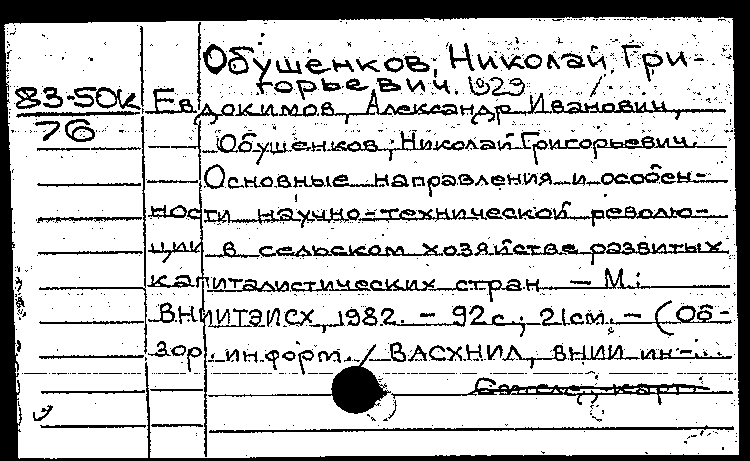 Обушенков, Николай Гри-
горьевич. 1929
83-50К Евдокимов, Александр Иванович,
76
Обушенков, Николай Григорьевич.
Основные направления и особен-
ности научно-технической револю-
ции в сельском хозяйстве развитых
капиталистических стран. — М.:
ВНИИТЭИСХ, 1982. - 92с.; 21см. - (Об-
зор. информ. / ВАСХНИЛ, ВНИИ ин-...